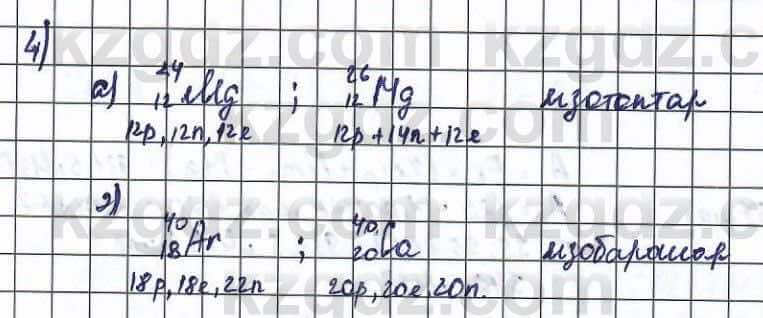 4)
а) ²⁴₁₂Mg ; ²⁶₁₂Mg изотоптар
12p, 12n, 12e 12p+14n+12e
ә) ⁴⁰₁₈Ar ; ⁴⁰₂₀Ca изобаралар
18p, 18e, 22n 20p, 20e, 20n.
kzgdz.com
kzgdz.com
kzgdz.com
kzgdz.com